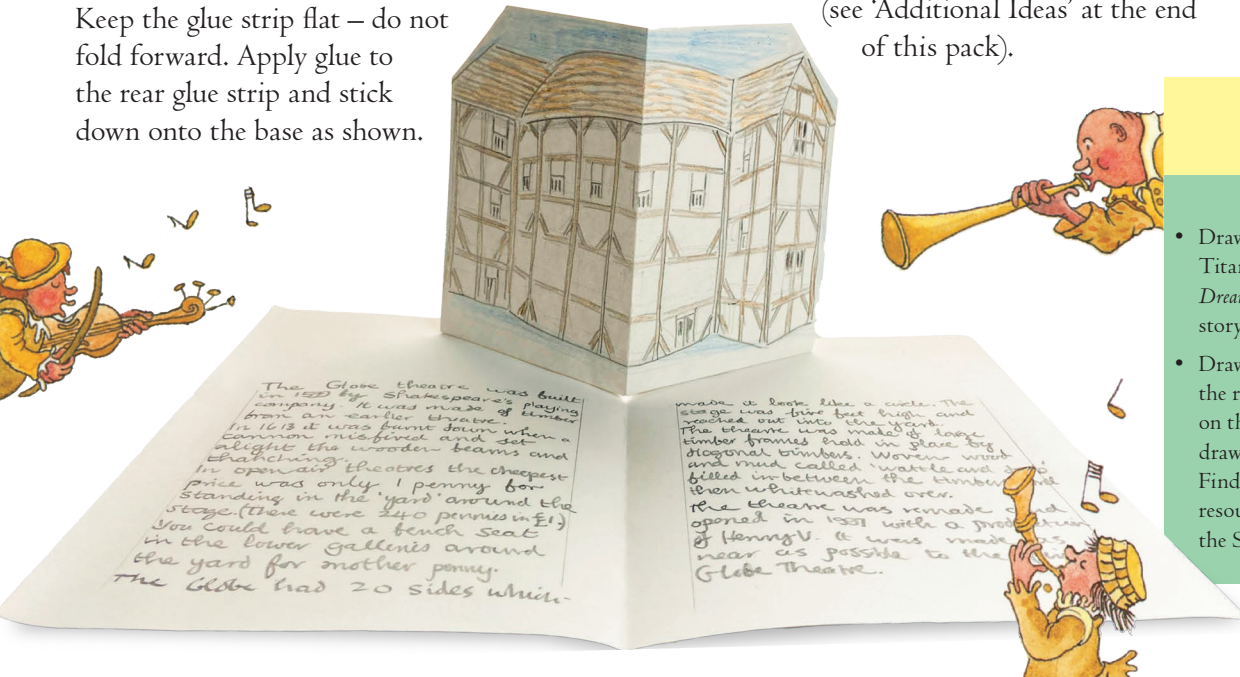 Keep the glue strip flat – do not
fold forward. Apply glue to
the rear glue strip and stick
down onto the base as shown.
(see ‘Additional Ideas’ at the end
of this pack).
The Globe theatre was built
in by Shakespeare's playing
company. It was made of timber
from an earlier theatre.
In 1613 it was burnt down when a
cannon misfired and set
alight the wooden beams and
thatching.
In open air theatres the cheapest
price was only 1 penny for
standing in the 'yard' around the
stage. (There were 240 pennies in £1)
You could have a bench seat
in the lower galleries around
the yard for another penny.
The Globe had 20 sides which
made it look like a circle. The
stage was five feet high and
reached out into the yard.
The theatre was made of large
timber frames held in place by
diagonal timbers. Woven wood
and mud called 'wattle and
filled in between the timber
then whitewashed over.
The theatre was remade
opened in with a
of Henry V. It was made as
near as possible to the
Globe Theatre.
• Draw
Titan
Drea
story
• Draw
the r
on th
draw
Find
resou
the S